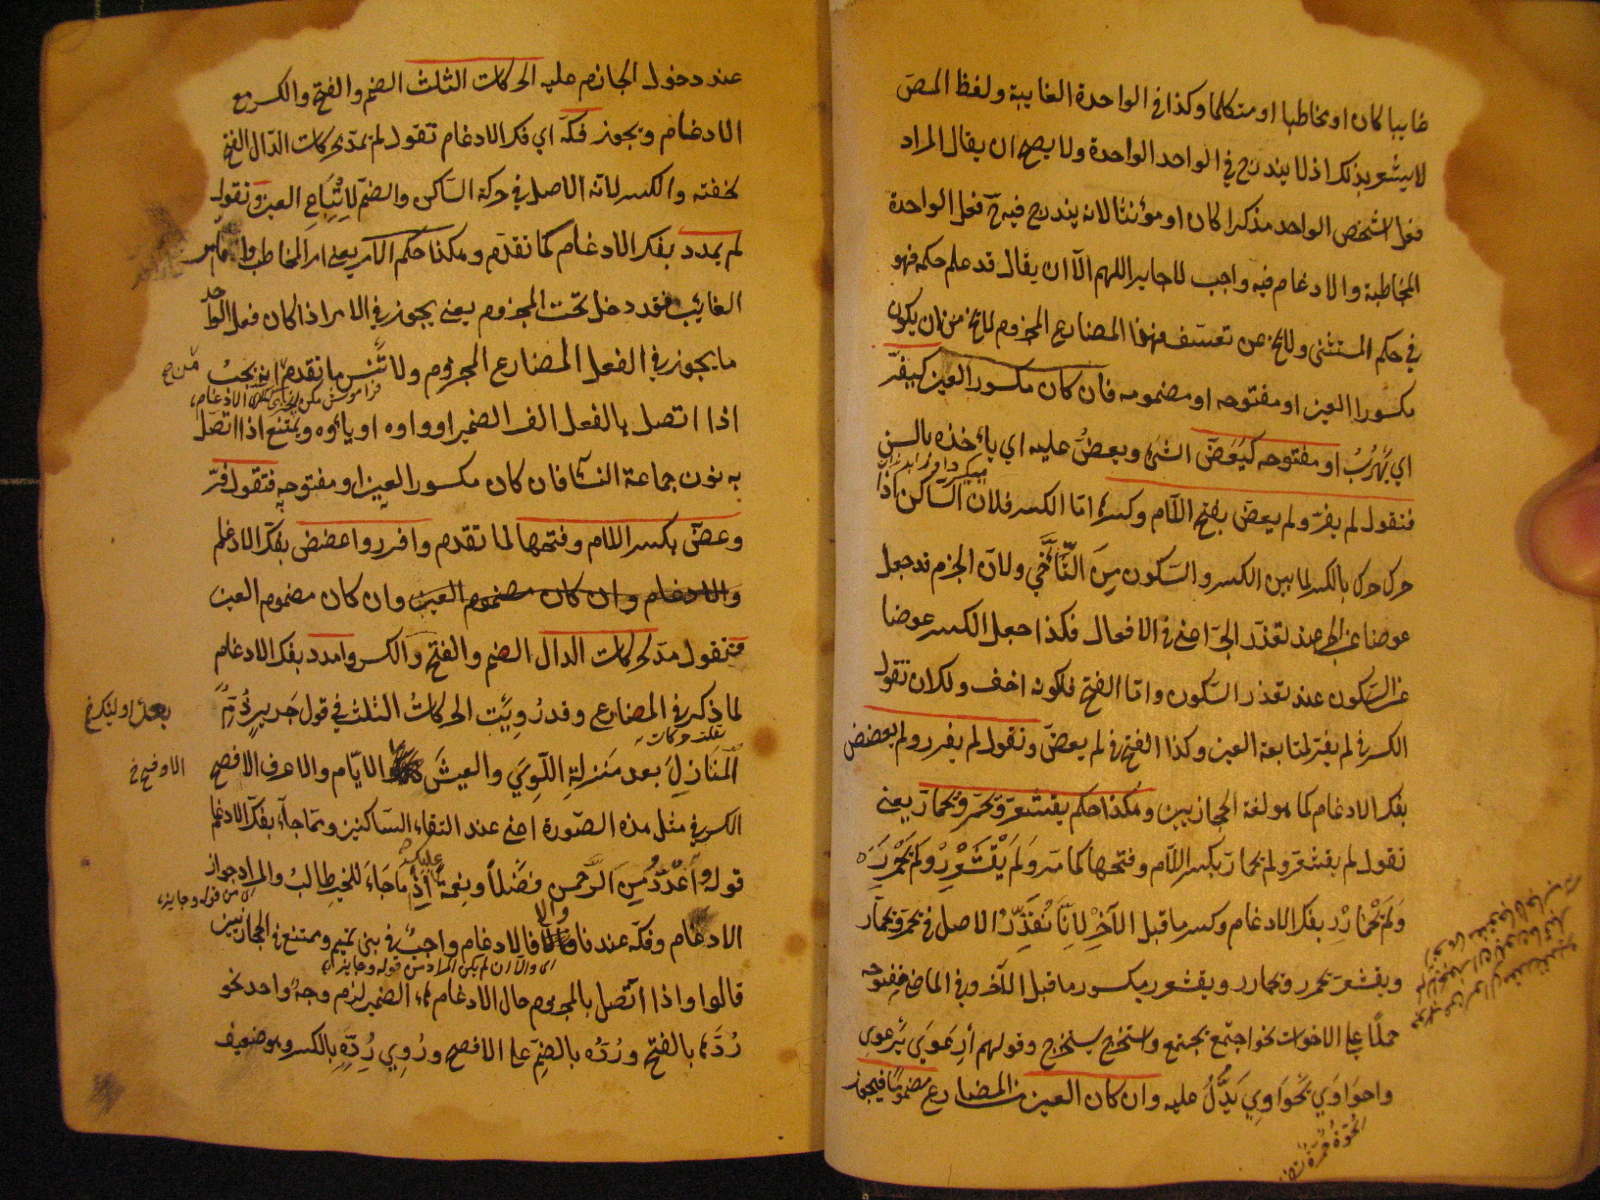 غايبا كان او مخاطبا او متكلما وكذا في الواحدة الغايبة ولفظ المص
لا يشعر بذلك اذ لا يندرج في الواحد الواحدة ولا يصح ان يقال المراد
فعل الشخص الواحد مذكرا كان او مؤنثا لانه يندرج فيه ح فعل الواحدة
المخاطبة والادغام فيه واجب لا جايز اللهم الا ان يقال قد علم حكمه فهو
في حكم المستثنى ولا يخ عن تعسف فهذا المضارع المجزوم لا يخ من ان يكون
مكسور العين او مفتوحه او مضمومه فان كان مكسور العين كيفر
اي يهرب او مفتوحه كيعض الشئ ويعض عليه اي يأخذه بالسن
فتقول لم يفر ولم يعض بفتح اللام وكسرها اما الكسر فلان الساكن اذا
حرك حرك بالكسر لما بين الكسر والسكون من التأخي ولان الجزم قد جعل
عوضا عن الجر عند تعذر الجر اعني في الافعال فكذا جعل الكسر عوضا
عن السكون عند تعذر السكون واما الفتح فلكونه اخف ولك ان تقول
الكسر في لم يفر لمتابعة العين وكذا الفتح في لم يعض وتقول لم يفرر ولم يعضض
بفك الادغام كما هو لغة الحجازيين وهكذا حكم يقشعر ويحمر ويحمار يعني
تقول لم يقشعر ولم يحمار بكسر اللام وفتحها كما مر ولم يقشعرر ولم يحمرر
ولم يحمارر بفك الادغام وكسر ما قبل الآخر لانا نقدر الاصل في يحمر ويحمار
ويقشعر يحمرر ويحمارر ويقشعرر بكسور ما قبل الآخر وفي الماضي مفتوحه
حملا على الاخوات نحو اجتمع يجتمع واستخرج يستخرج وقولهم ارعوى يرعوي
واحواوى يحواوي يدل عليه وان كان العين من المضارع مضموما فيجوز
عند دخول الجازم عليه الحركات الثلث الضم والفتح والكسر مع
الادغام ويجوز فكه اي فك الادغام تقول لم يمد بحركات الدال الفتح
لخفته والكسر لانه الاصل في حركة الساكن والضم لاتباع العين وتقول
لم يمدد بفك الادغام كما تقدم وهكذا حكم الامر يعني امر المخاطب واما امر
الغائب فقد دخل تحت المجزوم يعني يجوز في الامر اذا كان فعل الواحد
ما يجوز في الفعل المضارع المجزوم ولا تنس ما تقدم من انه يجب
الادغام
اذا اتصل بالفعل الف الضمير او واوه او ياؤه ويمتنع اذا اتصل
به نون جماعة النسآء فان كان مكسور العين او مفتوحه فتقول فر
وعض بكسر اللام وفتحها لما تقدم وافرر واعضض بفك الادغام
والادغام وان كان مضموم العين وان كان مضموم العين
فتقول مد بحركات الدال الضم والفتح والكسر وامدد بفك الادغام
لما ذكر في المضارع وقد رويت الحركات الثلث في قول جرير ذم
المنازل بعد منزلة اللوى والعيش بعد اولئك الايام والاعرف الافصح
الكسر في مثل هذه الصورة اعني عند التقاء الساكنين ومما جاء بفك الادغام
قوله واعدد من الرحمن فضلا ونعمة عليك اذا ما جاء للخير طالب والمراد جواز
الادغام وفكه عندنا والا فالادغام واجب في بني تميم وممتنع في الحجازيين
قالوا واذا اتصل بالمجزوم حال الادغام هاء الضمير لزم وجه واحد نحو
ردها بالفتح ورده بالضم على الافصح وروي رده بالكسر وهو ضعيف